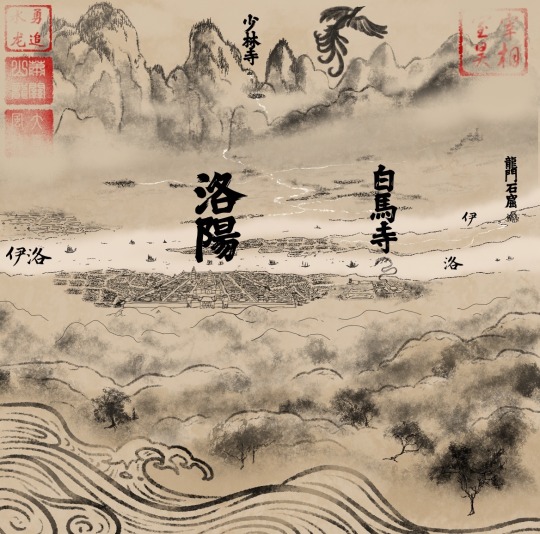 少林寺
洛陽
白馬寺
龍門石窟
伊
洛
伊洛
勇追
宰相